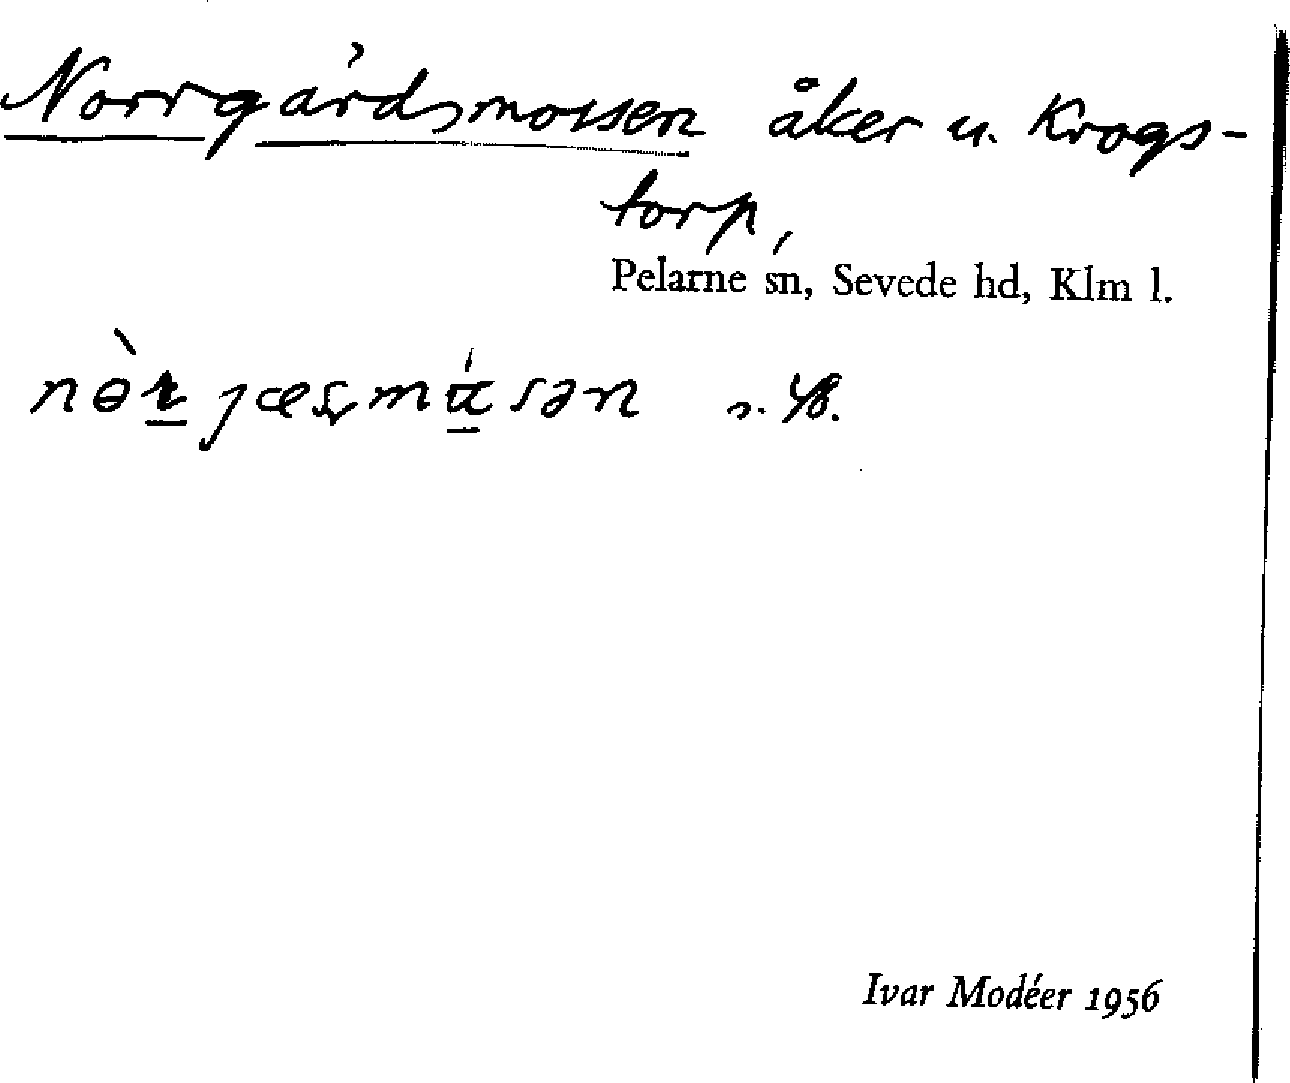 Norrgårdsmossen åker u. Krogs-
torp,
Pelarne sn, Sevede hd, Klm l.
Ivar Modéer 1956